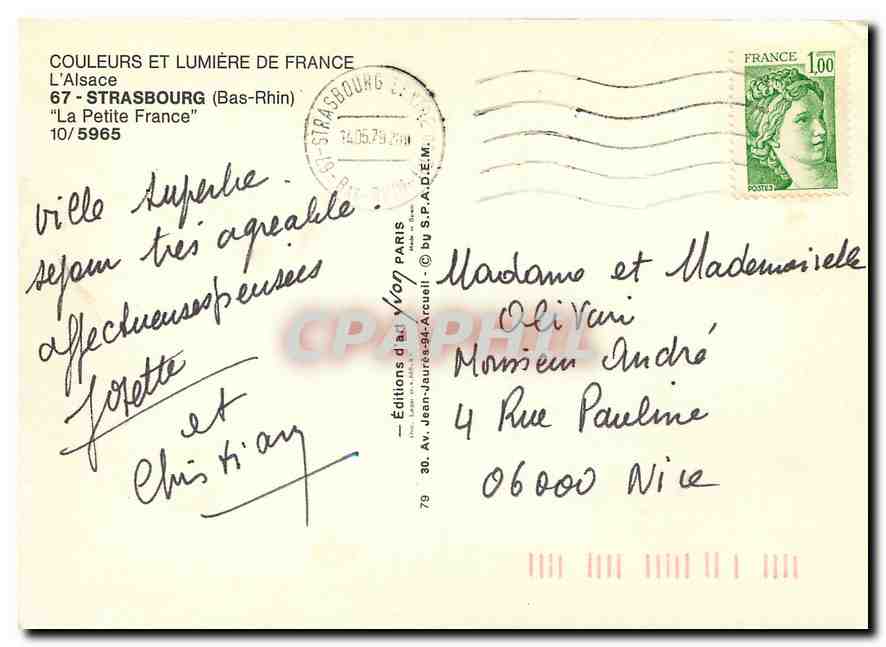 COULEURS ET LUMIÈRE DE FRANCE
L'Alsace
67 - STRASBOURG (Bas-Rhin)
"La Petite France"
10/5965
67-STRASBOURG
14.05.79
FRANCE 1,00
POSTES
Ville superbe.
sejour très agréable.
affectueuses pensées
Josette
et
Christian
Madame et Mademoiselle
Olivari
Monsieur André
4 Rue Pauline
06000 Nice
79 30. Av. Jean-Jaurès-94-Arcueil - © by S.P.A.D.E.M.
— Éditions d'art Yvon PARIS
CPAPHIL